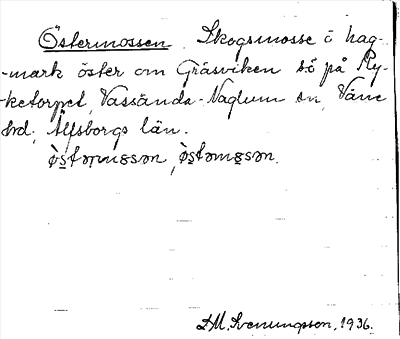 Östermossen. Skogsmosse i hag-
-mark öster om Gräsviken sö på Ry-
-ketorpet, Vassända-Naglum sn, Väne
hd, Älfsborgs län.
L. M. Svenungsson, 1936.